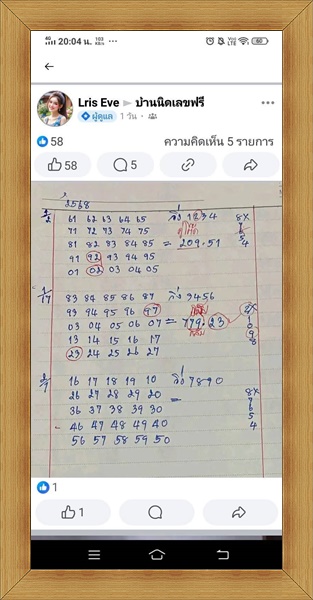 20:04 น. 103 KB/s ... Vo) LTE 60
Lris Eve ▸ บ้านนิดเลขฟรี
ผู้ดูแล · 1 วัน ·
58 ความคิดเห็น 5 รายการ
58 5
2568
2/2 61 62 63 64 65 วิ่ง 1234 8x
71 72 73 74 75 7
81 82 83 84 85 = 209.51 5 4
91 92 93 94 95
01 02 03 04 05
1/17 83 84 85 86 87 วิ่ง 3456
93 94 95 96 97
03 04 05 06 07 = 779.23
13 14 15 16 17
23 24 25 26 27
2/1 16 17 18 19 10 วิ่ง 7890
26 27 28 29 20 = 8x
36 37 38 39 30 7 6
46 47 48 49 40 5
56 57 58 59 50 4
1
1